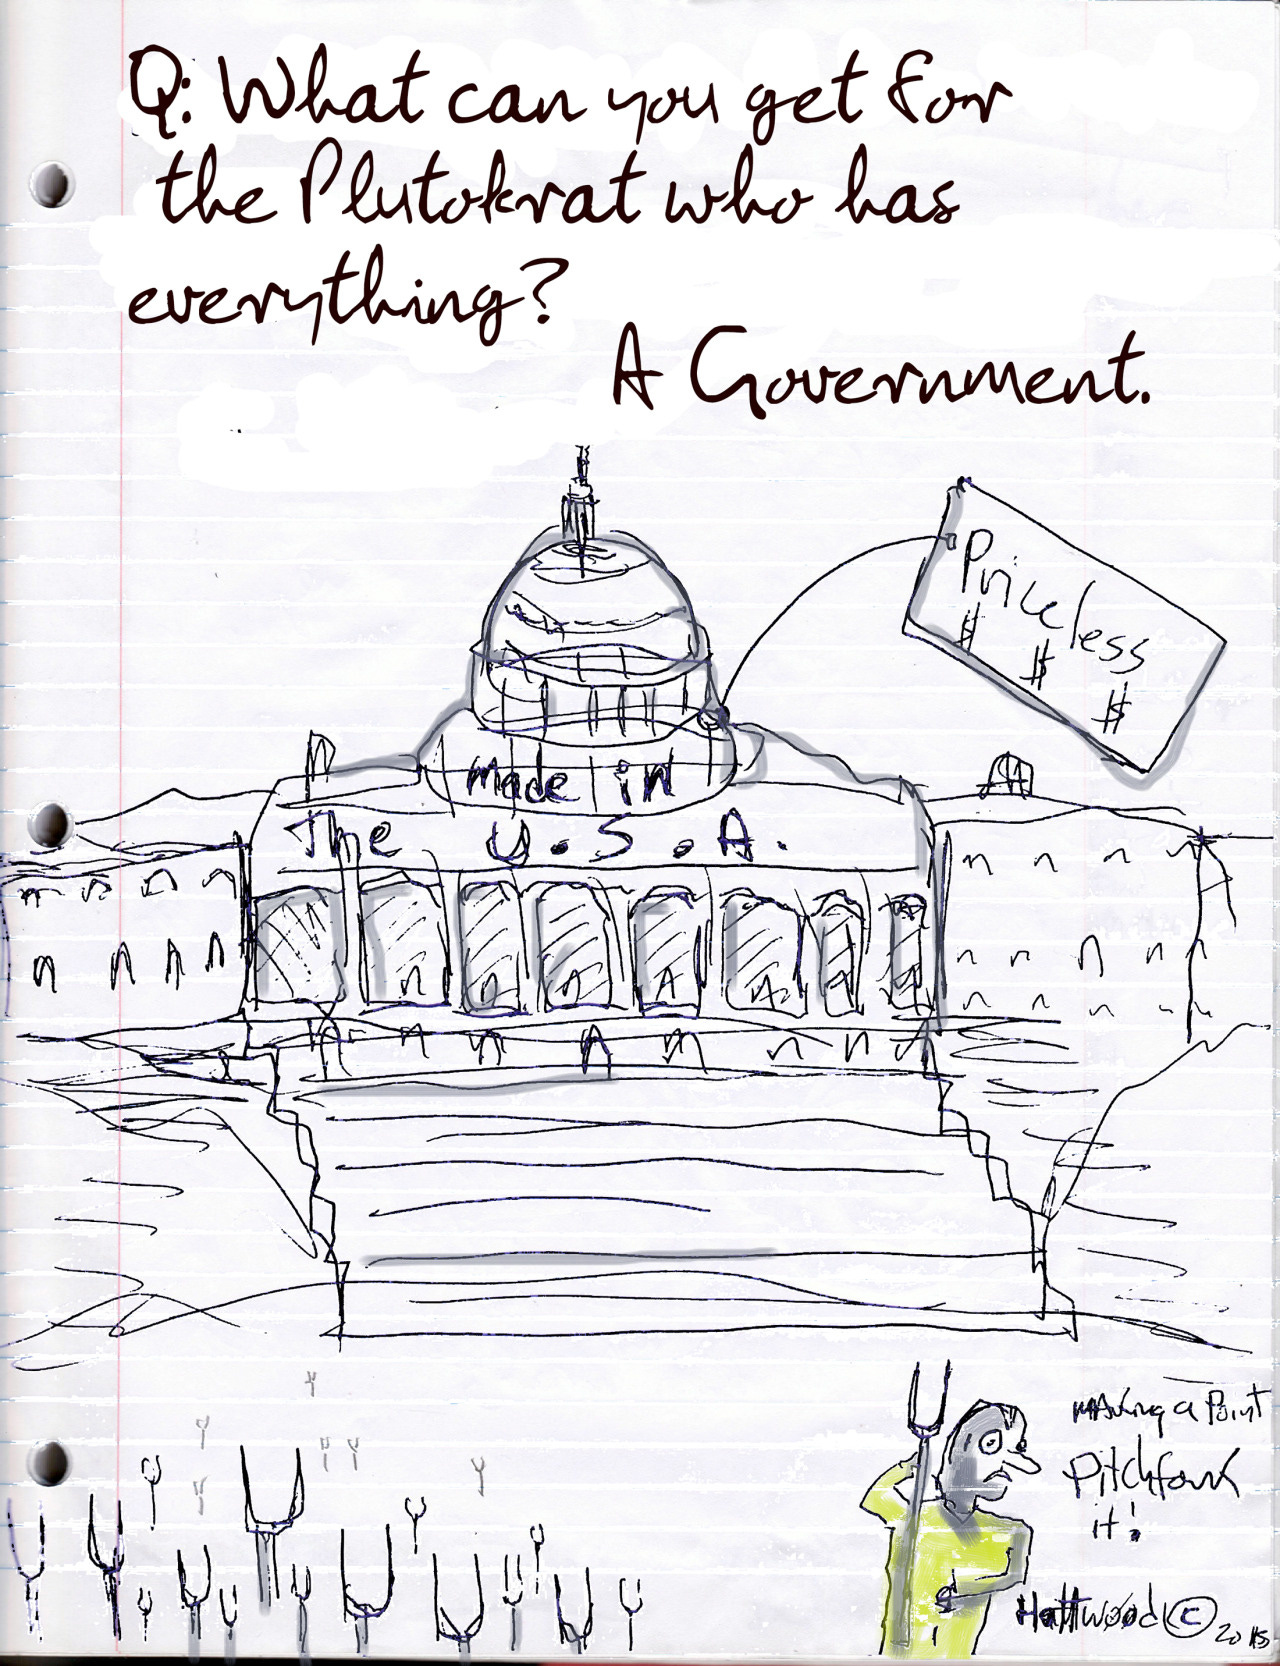 Q: What can you get for
the Plutokrat who has
everything?
A Government.
Priceless
$ $ $
made in
The U.S.A.
Making a Point
Pitchfork
it!
Hattwood ©